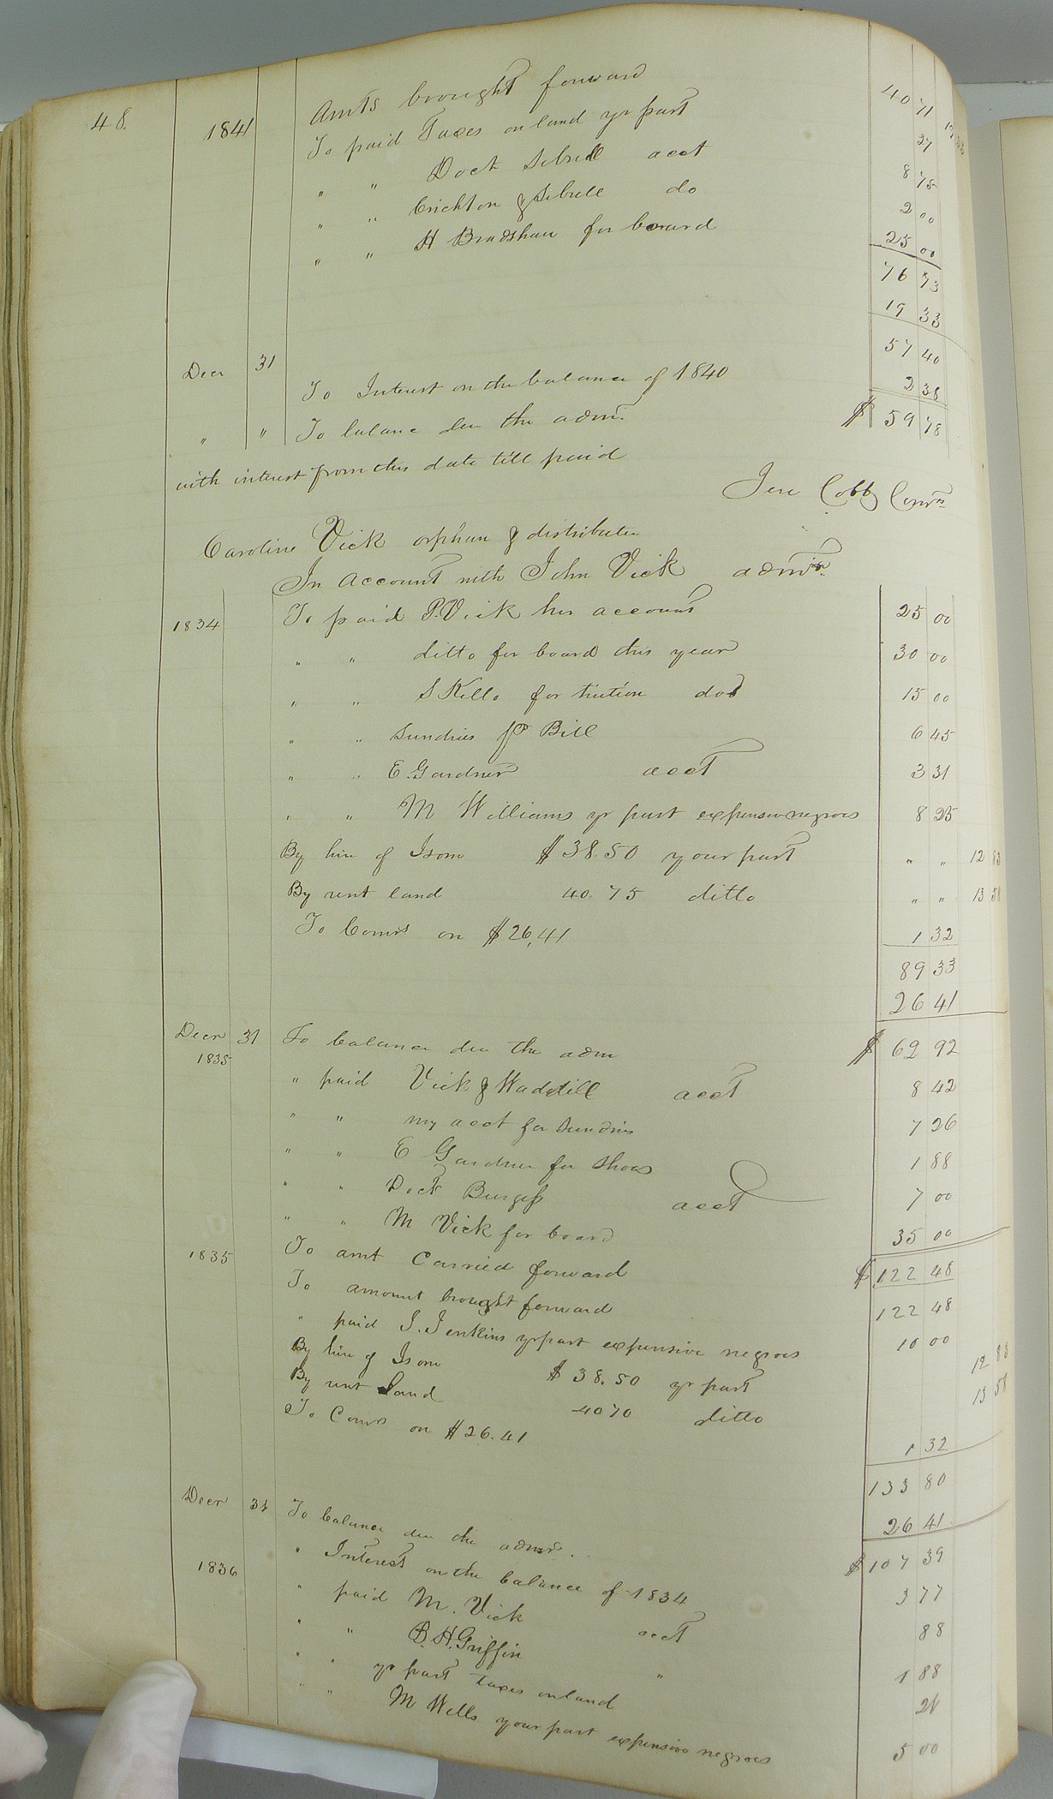 48.
1841 Amts brought forward 40 71
To paid Taxes on land yr part 27
" " Doct Sebrell acct 8 75
" " Crichton & Sebrell do 2 00
" " H Bradshaw for board 25 00
76 73
19 33
57 40
Decr 31 To Interest on the balance of 1840 2 38
" " To balance due the admr. $ 59 78
with interest from this date till paid
Jere Cobb Comr
Caroline Vick orphan & distributee
In Account with John Vick admr.
1834 To paid P. Vick her account 25 00
" " ditto for board this year 30 00
" " S Kello for tuition do 15 00
" " Sundries pr Bill 6 45
" " E. Gardner acct 3 31
" " M Williams yr part expensive negroes 8 25
By hire of Isom $38.50 your part " " 12 83
By rent land 40.75 ditto " " 13 58
To Comrs on $26,41 1 32
89 33
26 41
Decr 31 To balance due the adm $ 62 92
1835 " paid Vick & Waddill acct 8 42
" " my acct for Sundries 7 26
" " E Gardner for Shoes 1 88
" " Doct Burgess acct 7 00
" " M Vick for board 35 00
1835 To amt Carried forward $ 122 48
To amount brought forward 122 48
" paid J. Jenkins yr part expensive negroes 10 00
By hire of Isom $38.50 yr part 12 83
By rent Land 40 70 ditto 13 58
To Coms on $26.41 1 32
133 80
26 41
Decr 31 To balance due the admr. $ 107 39
" Interest on the balance of 1834 3 77
1836 " paid M. Vick acct 88
" " B. H. Griffin " 1 88
" " yr part taxes on land 21
" " M Wells your part expensive negroes 5 00